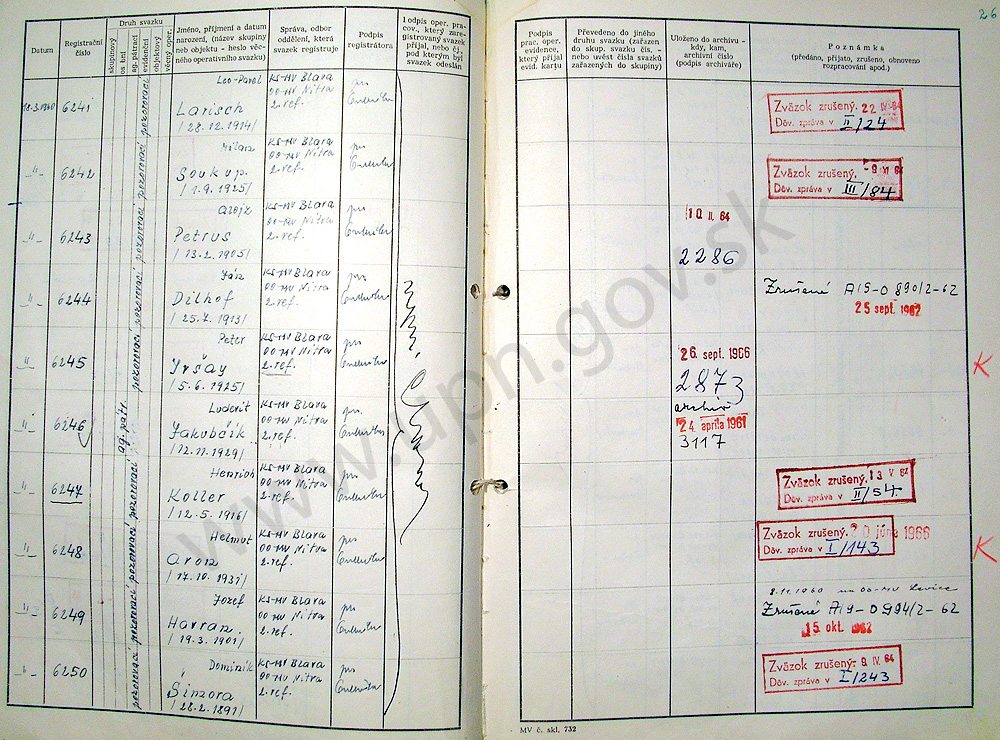 26
Datum
Registrační číslo
Druh svazku
skupinový
os tní
ag.-pátrací
evidenční
objektový
věcný oper.
Jméno, příjmení a datum
narození, (název skupiny
nebo objektu - heslo věc-
ného operativního svazku)
Správa, odbor
oddělení, která
svazek registruje
Podpis
registrátora
I odpis oper. pra-
cov., který zare-
gistrovaný svazek
přijal, nebo čj.,
pod kterým byl
svazek odeslán
Podpis
prac. oper.
evidence,
který přijal
evid. kartu
Převedeno do jiného
druhu svazku (zařazen
do skup. svazku čís. -
nebo uvést čísla svazků
zařazených do skupiny)
Uloženo do archivu -
kdy, kam,
archivní číslo
(podpis archiváře)
Poznámka
(předáno, přijato, zrušeno, obnoveno
rozpracování apod.)
18.3.1960 6241 pozorovací Leo-Pavol KS-MV Blava
Larisch 00-MV Nitra
/28.12.1914/ 2.ref.
Zväzok zrušený. 22 IV. 64
Dôv. zpráva v II/24
-"- 6242 pozorovací Milan KS-MV Blava
Soukup 00-MV Nitra
/1.9.1925/ 2.ref.
Zväzok zrušený. -9 XI 64
Dôv. zpráva v III/84
-"- 6243 pozorovací Alojz KS-MV Blava
Petrus 00-MV Nitra
/13.2.1905/ 2.ref.
10 II. 64
2286
-"- 6244 pozorovací Ján KS-MV Blava
Dilhof 00-MV Nitra
/25.7.1913/ 2.ref.
Zrušené A/5-0890/2-62
25 sept. 1962
-"- 6245 pozorovací Peter KS-MV Blava
Yršay 00-MV Nitra
/5.6.1925/ 2.ref.
26. sept. 1966
2873
archív
K
-"- 6246 ag. pátr. Ludevit KS-MV Blava
Jakubčík 00-MV Nitra
/12.11.1929/ 2.ref.
24. apríla 1961
3117
-"- 6247 pozorovací Henrich KS-MV Blava
Koller 00-MV Nitra
/12.5.1916/ 2.ref.
Zväzok zrušený. 13 V. 62
Dôv. zpráva v II/54
-"- 6248 pozorovací Helmut KS-MV Blava
Aron 00-MV Nitra
/17.10.1931/ 2.ref.
Zväzok zrušený. 20 júna 1966
Dôv. zpráva v I/143
K
-"- 6249 pozorovací Jozef KS-MV Blava
Havran 00-MV Nitra
/19.3.1901/ 2.ref.
2.11.1960 na 00-MV Levice
Zrušené A/9-0994/2-62
15. okt. 1962
-"- 6250 pozorovací Dominik KS-MV Blava
Šinzora 00-MV Nitra
/28.2.1891/ 2.ref.
Zväzok zrušený. -9. IV. 64
Dôv. zpráva v I/243
MV č. skl. 732
www.upn.gov.sk